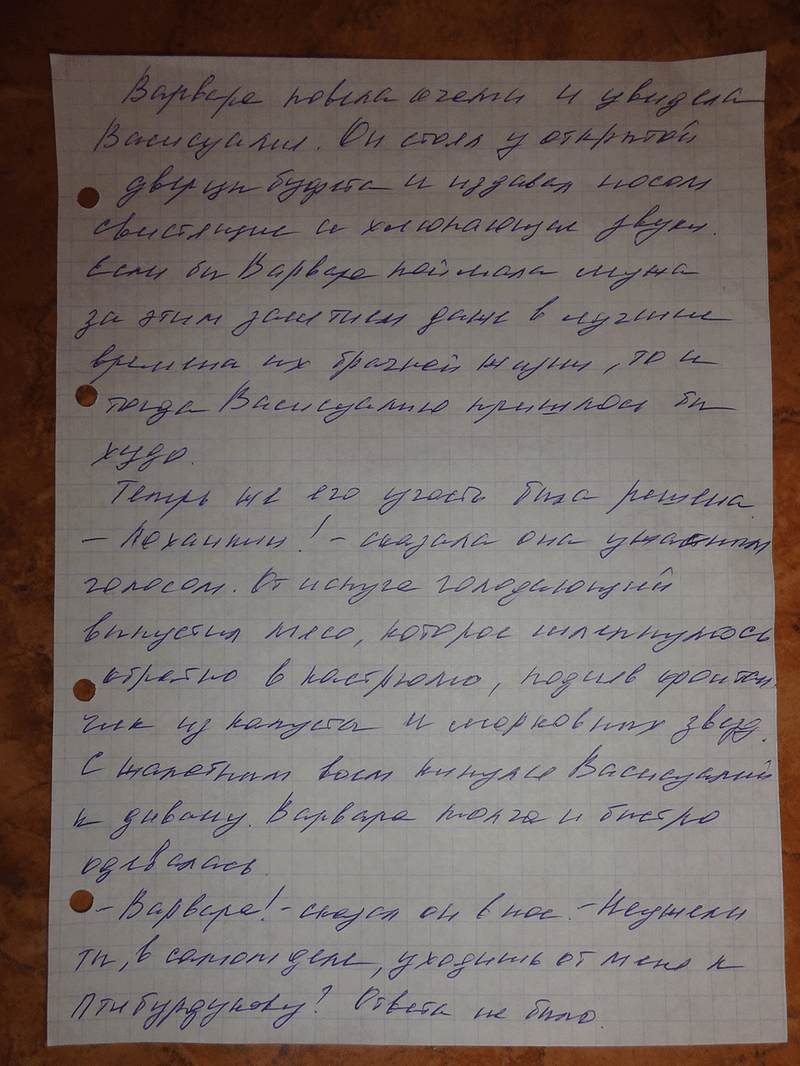 Варвара повела очами и увидела
Васисуалия. Он стоял у открытой
дверцы буфета и издавал носом
свистящие и хлюпающие звуки.
Если бы Варвара поймала мужа
за этим занятием даже в лучшие
времена их брачной жизни, то и
тогда Васисуалию пришлось бы
худо.
Теперь же его участь была решена.
- Лоханкин! - сказала она ужасным
голосом. От испуга голодающий
выпустил мясо, которое шлепнулось
обратно в кастрюлю, подняв фонтан-
чик из капусты и морковных звезд.
С жалобным воем кинулся Васисуалий
к дивану. Варвара молча и быстро
одевалась.
- Варвара! - сказал он в нос. - Неужели
ты, в самом деле, уходишь от меня к
Птибурдукову? Ответа не было.